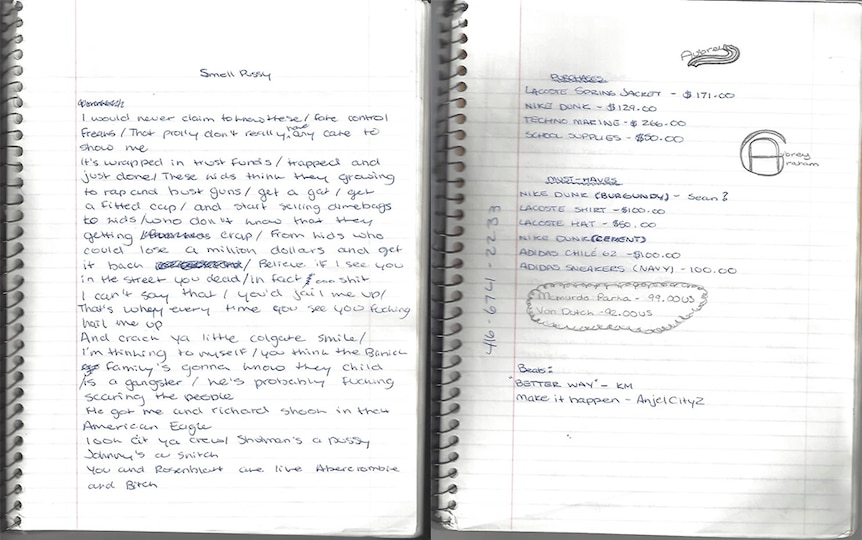 Smell Pussy
I would never claim to know these/ fate control
Freaks/ That prolly don't really have any cate to
show me
It's wrapped in trust funds/ trapped and
just done/ These kids think they growing
to rap and bust guns/ get a gat/ get
a fitted cap/ and start selling dimebags
to kids/who don't know that they
getting crap/ From kids who
could lose a million dollars and get
it back / Believe if I see you
in the street you dead/in fact I can shit
I can't say that/ you'd jail me up/
That's why every time you see you fucking
hail me up
And crack ya little colgate smile/
I'm thinking to myself/you think the
family's gonna know they child
is a gangster/ he's probably fucking
scaring the people
He got me and richard shook in that
American Eagle
look at ya crew/ Shulman's a pussy
Johnny's a snitch
You and Rosenblatt are like Abercrombie
and Bitch
Aubrey
PURCHASES
LACOSTE SPRING JACKET - $171.00
NIKE DUNK - $129.00
TECHNO MARINE - $266.00
SCHOOL SUPPLIES - $50.00
Aubrey
Graham
MUST-HAVES
NIKE DUNK (BURGUNDY) - Sean?
LACOSTE SHIRT - $100.00
LACOSTE HAT - $50.00
NIKE DUNK (CEMENT)
ADIDAS CHILE 62 - $100.00
ADIDAS SNEAKERS (NAVY) - 100.00
Mcmurdo Parka - 99.00US
Von Dutch - 92.00US
416-6741-2233
Beats:
"BETTER WAY" - KM
Make it happen - AnjelCity2